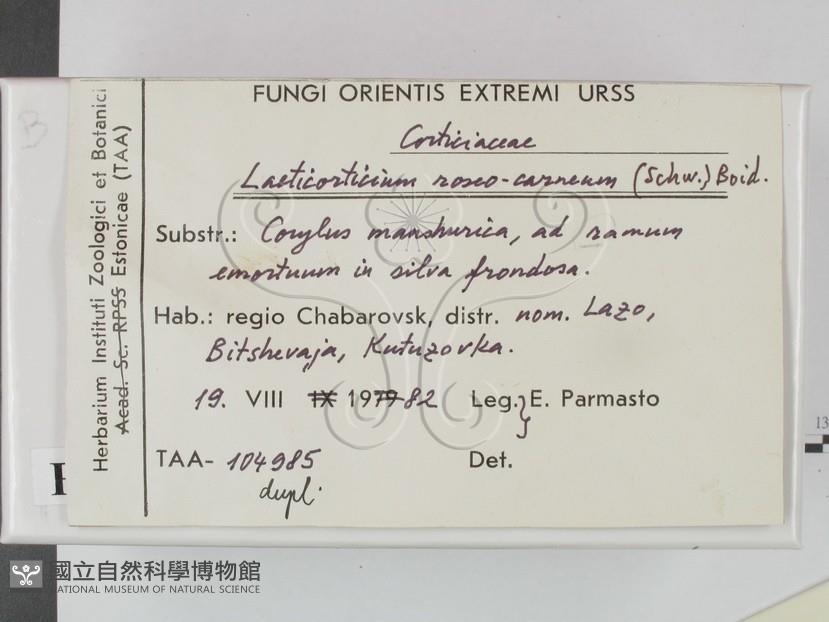 FUNGI ORIENTIS EXTREMI URSS
Corticiaceae
Laeticorticium roseo-carneum (Schw.) Boid.
Substr.: Corylus manshurica, ad ramum
emortuum in silva frondosa.
Hab.: regio Chabarovsk, distr. nom. Lazo,
Bitshevaja, Kutuzovka.
19. VIII IX 197982 Leg. E. Parmasto
TAA- 104985 Det.
dupl.
Herbarium Instituti Zoologici et Botanici
Acad. Sc. RPSS Estonicae (TAA)
B
13
國立自然科學博物館
NATIONAL MUSEUM OF NATURAL SCIENCE